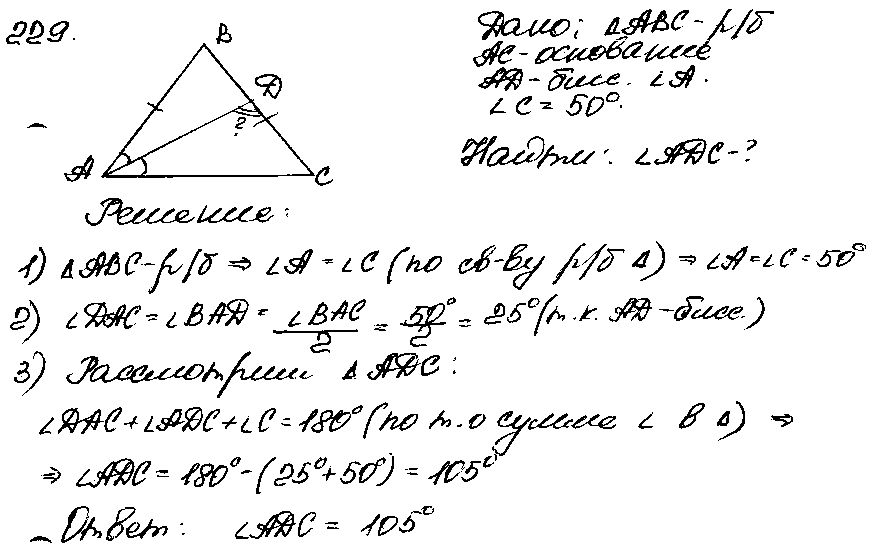 229.
B
D
?
A
C
Дано: ∆ABC - р/б
AC - основание
AD - бисс. ∠A.
∠C = 50°.
Найти: ∠ADC - ?
Решение:
1) ∆ABC - р/б ⇒ ∠A = ∠C (по св-ву р/б ∆) ⇒ ∠A = ∠C = 50°
2) ∠DAC = ∠BAD = ∠BAC/2 = 50°/2 = 25° (т.к. AD - бисс.)
3) Рассмотрим ∆ADC:
∠DAC + ∠ADC + ∠C = 180° (по т. о сумме ∠ в ∆) ⇒
⇒ ∠ADC = 180° - (25° + 50°) = 105°
Ответ: ∠ADC = 105°